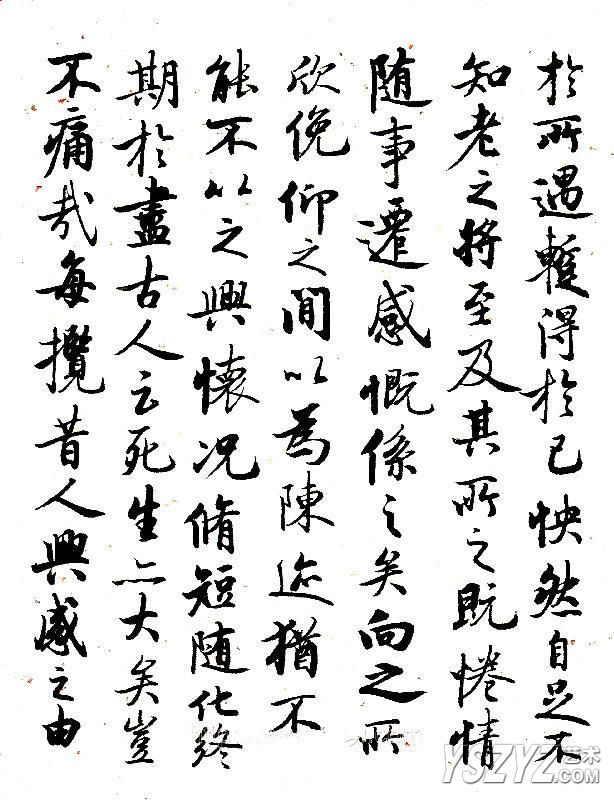 於所遇暫得於己怏然自足不
知老之將至及其所之既惓情
随事遷感慨係之矣向之所
欣俛仰之閒以為陳迹猶不
能不以之興懷况脩短随化終
期於盡古人云死生亦大矣豈
不痛哉每攬昔人興感之由
YSZYZ艺术